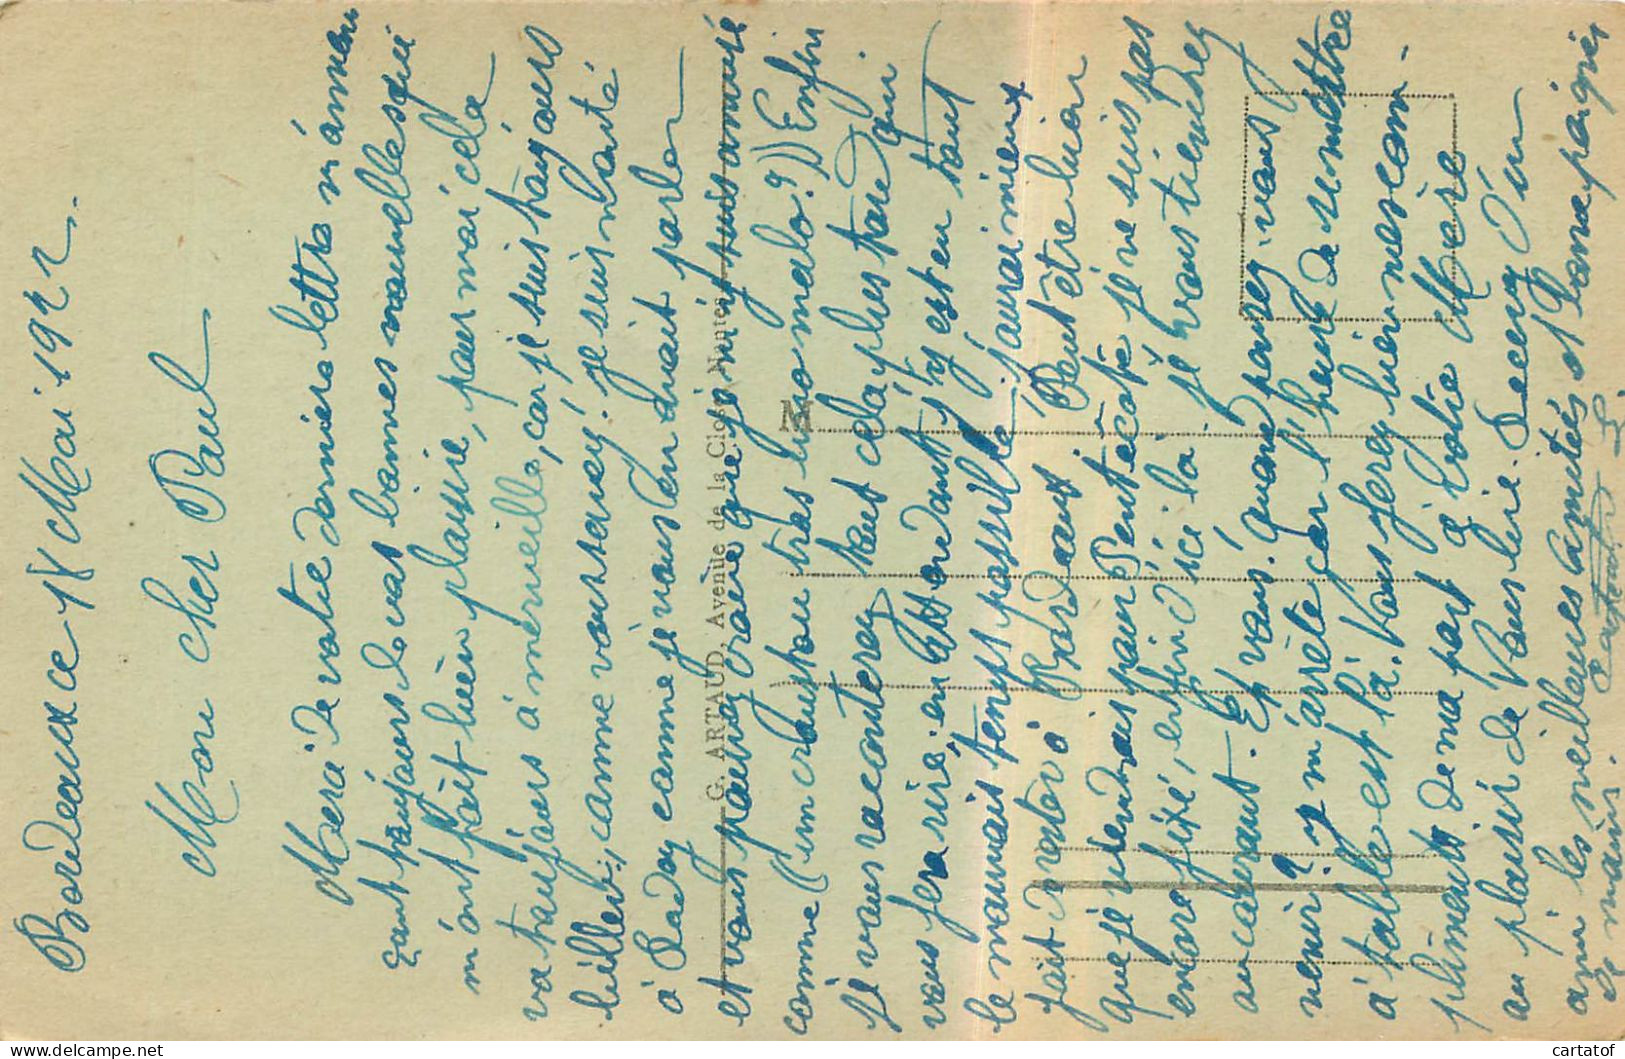 Bordeaux ce 18 Mai 1922.
Mon cher Paul
Merci de votre dernière lettre m'annon
çant toujours de vos bonnes nouvelles qui
m'ont fait bien plaisir, pour moi cela
va toujours à merveille, car je suis toujours
comme vous savez. je suis monté
à comme je vous l'en avait parler
et vous pouvez croire que je m'y suis amusé
comme
je vous raconterez tout cela plus tard qui
vous fera rire, en attendant s'y est en tout
le mauvais temps possible j'aurai mieux
fait de rester à Bordeaux. Peut être bien
que je viendrais pour Pentecôte je ne suis pas
encore fixé, enfin d'ici la je vous tiendrez
au courant. Et vous! quand pensez-vous
venir? Je m'arrête car l'heure de se mettre
à table est là. Vous ferez bien mes com-
pliments de ma part à votre Mère
au plaisir de vous lire. Recevez d'un
ami les meilleures amitiés et
de mains.
G. ARTAUD, Avenue de la Close, Nantes
M
cartatof